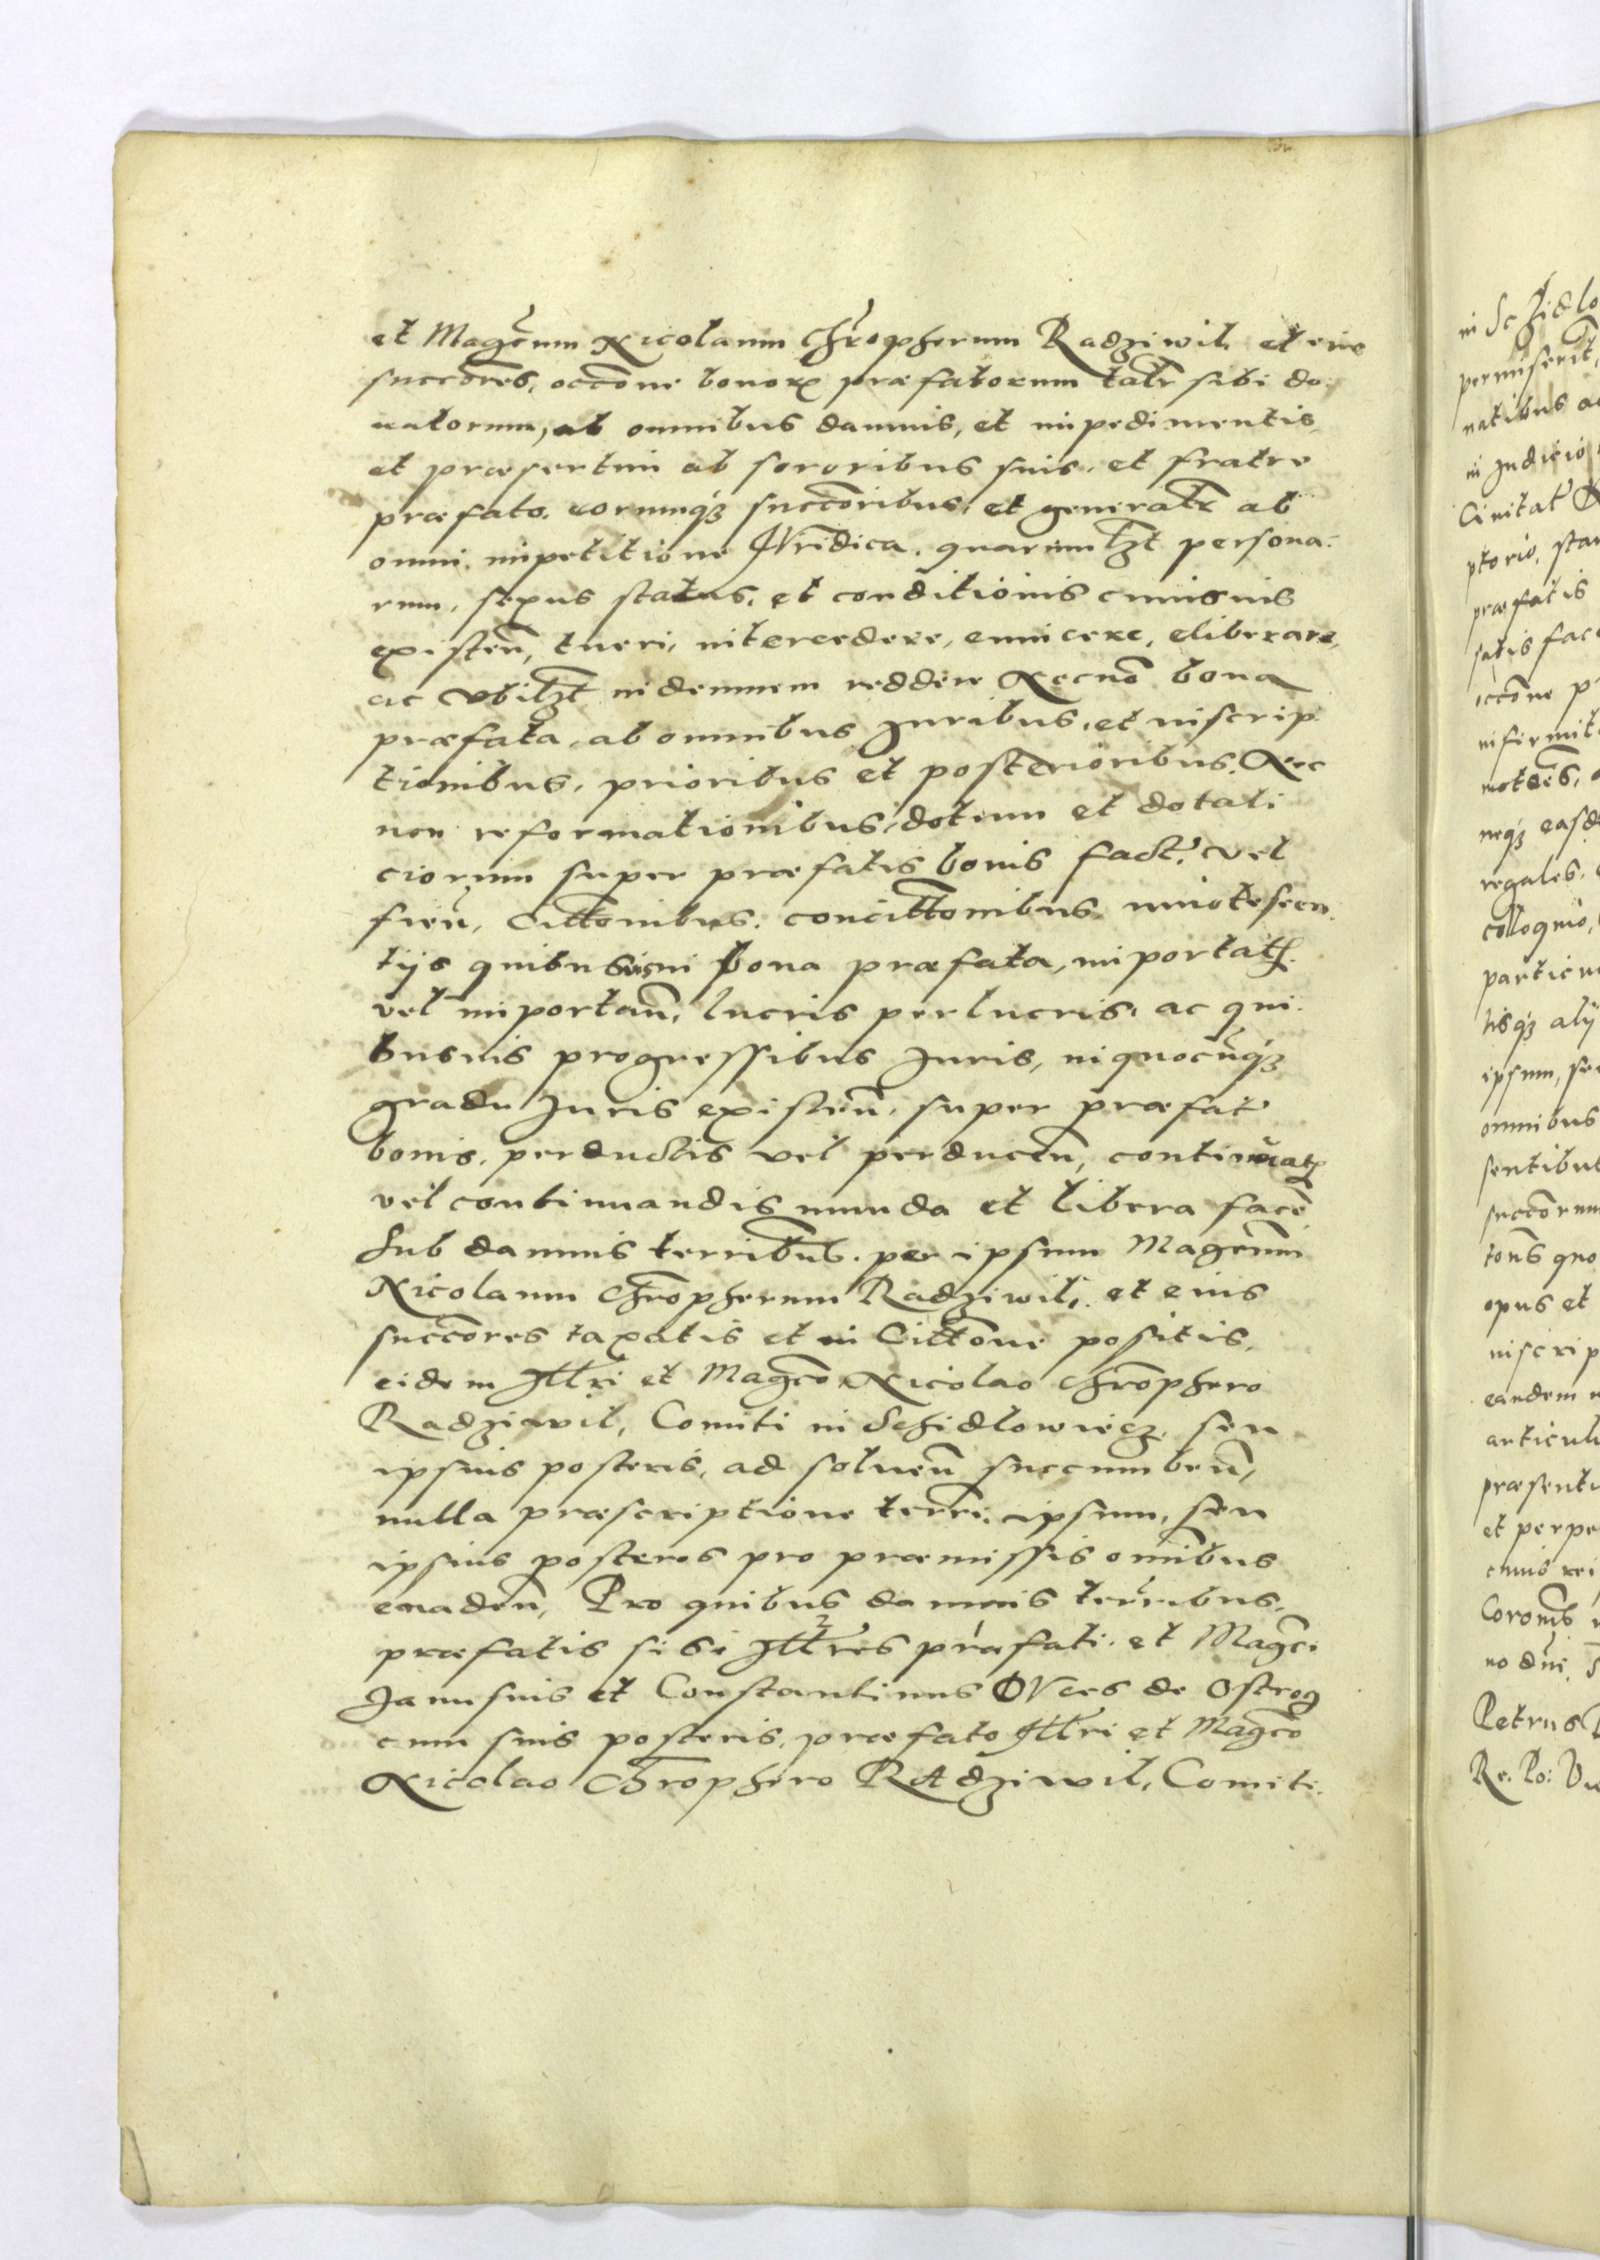 et Magcum Nicolaum Chropherum Radziwil, et eius
succores, occone bonorz praefatorum taltr sibi do
natorum, ab omnibus damnis, et impedimentis,
et praesertim ab sororibus suis, et fratre
praefato, eorumqz succoribus, et generaltr ab
omni impetitione Juridica, quarumlzt persona:
rum, sexus status, et conditionis cuiusuis
existen, tueri, intercedere, euincere, eliberare,
ac vbilzt indemnem reddere Necno bona
praefata, ab omnibus Juribus, et inscrip
tionibus, prioribus et posterioribus, Nec
non reformationibus, dotium et dotali
ciorum super praefatis bonis fact, vel
fien, Cittonibus, concittonibus, innotescen
tijs quibusuis in bona praefata, importat
vel importan, lucris perlucris, ac qui
busuis progressibus Juris, in quocunqz
gradu Juris existen, super praefat
bonis, perductis vel perducen, continuat
vel continuandis munda et libera facē
Sub damnis terribus, per ipsum Magcum
Nicolaum Chropherum Radziwil, et eius
succores taxatis et in Cittone positis,
eidem Illri et Magco Nicolao Chrophero
Radziwil, Comiti in Schidlowiecz, seu
ipsius posteris, ad soluen succumben,
nulla praescriptione terre, ipsum, seu
ipsius posteros pro praemissis omibus
euaden, Pro quibus damnis terribus,
praefatis si si Illres praefati, et Magci
Janusius et Constantinus DVces de Ostrog
cum suis posteris, praefato Illri et Magco
Nicolao Chrophero RAdziwil, Comiti
in Schidlo
permiserit,
natibus
in Judicio
Ciuitat
ptorio, star
praefatis
satis fac
occone
infirmit
motoes,
neqz easd
regales,
colloquio,
particu
tisqz alij
ipsum, seu
omnibus
sentibus
succorum
tons quo
opus et
inscrip
eandem
articuli
praesenti
et perpe
cuius rei
Coronis
no dni,
Petrus
Re. Po: Vi